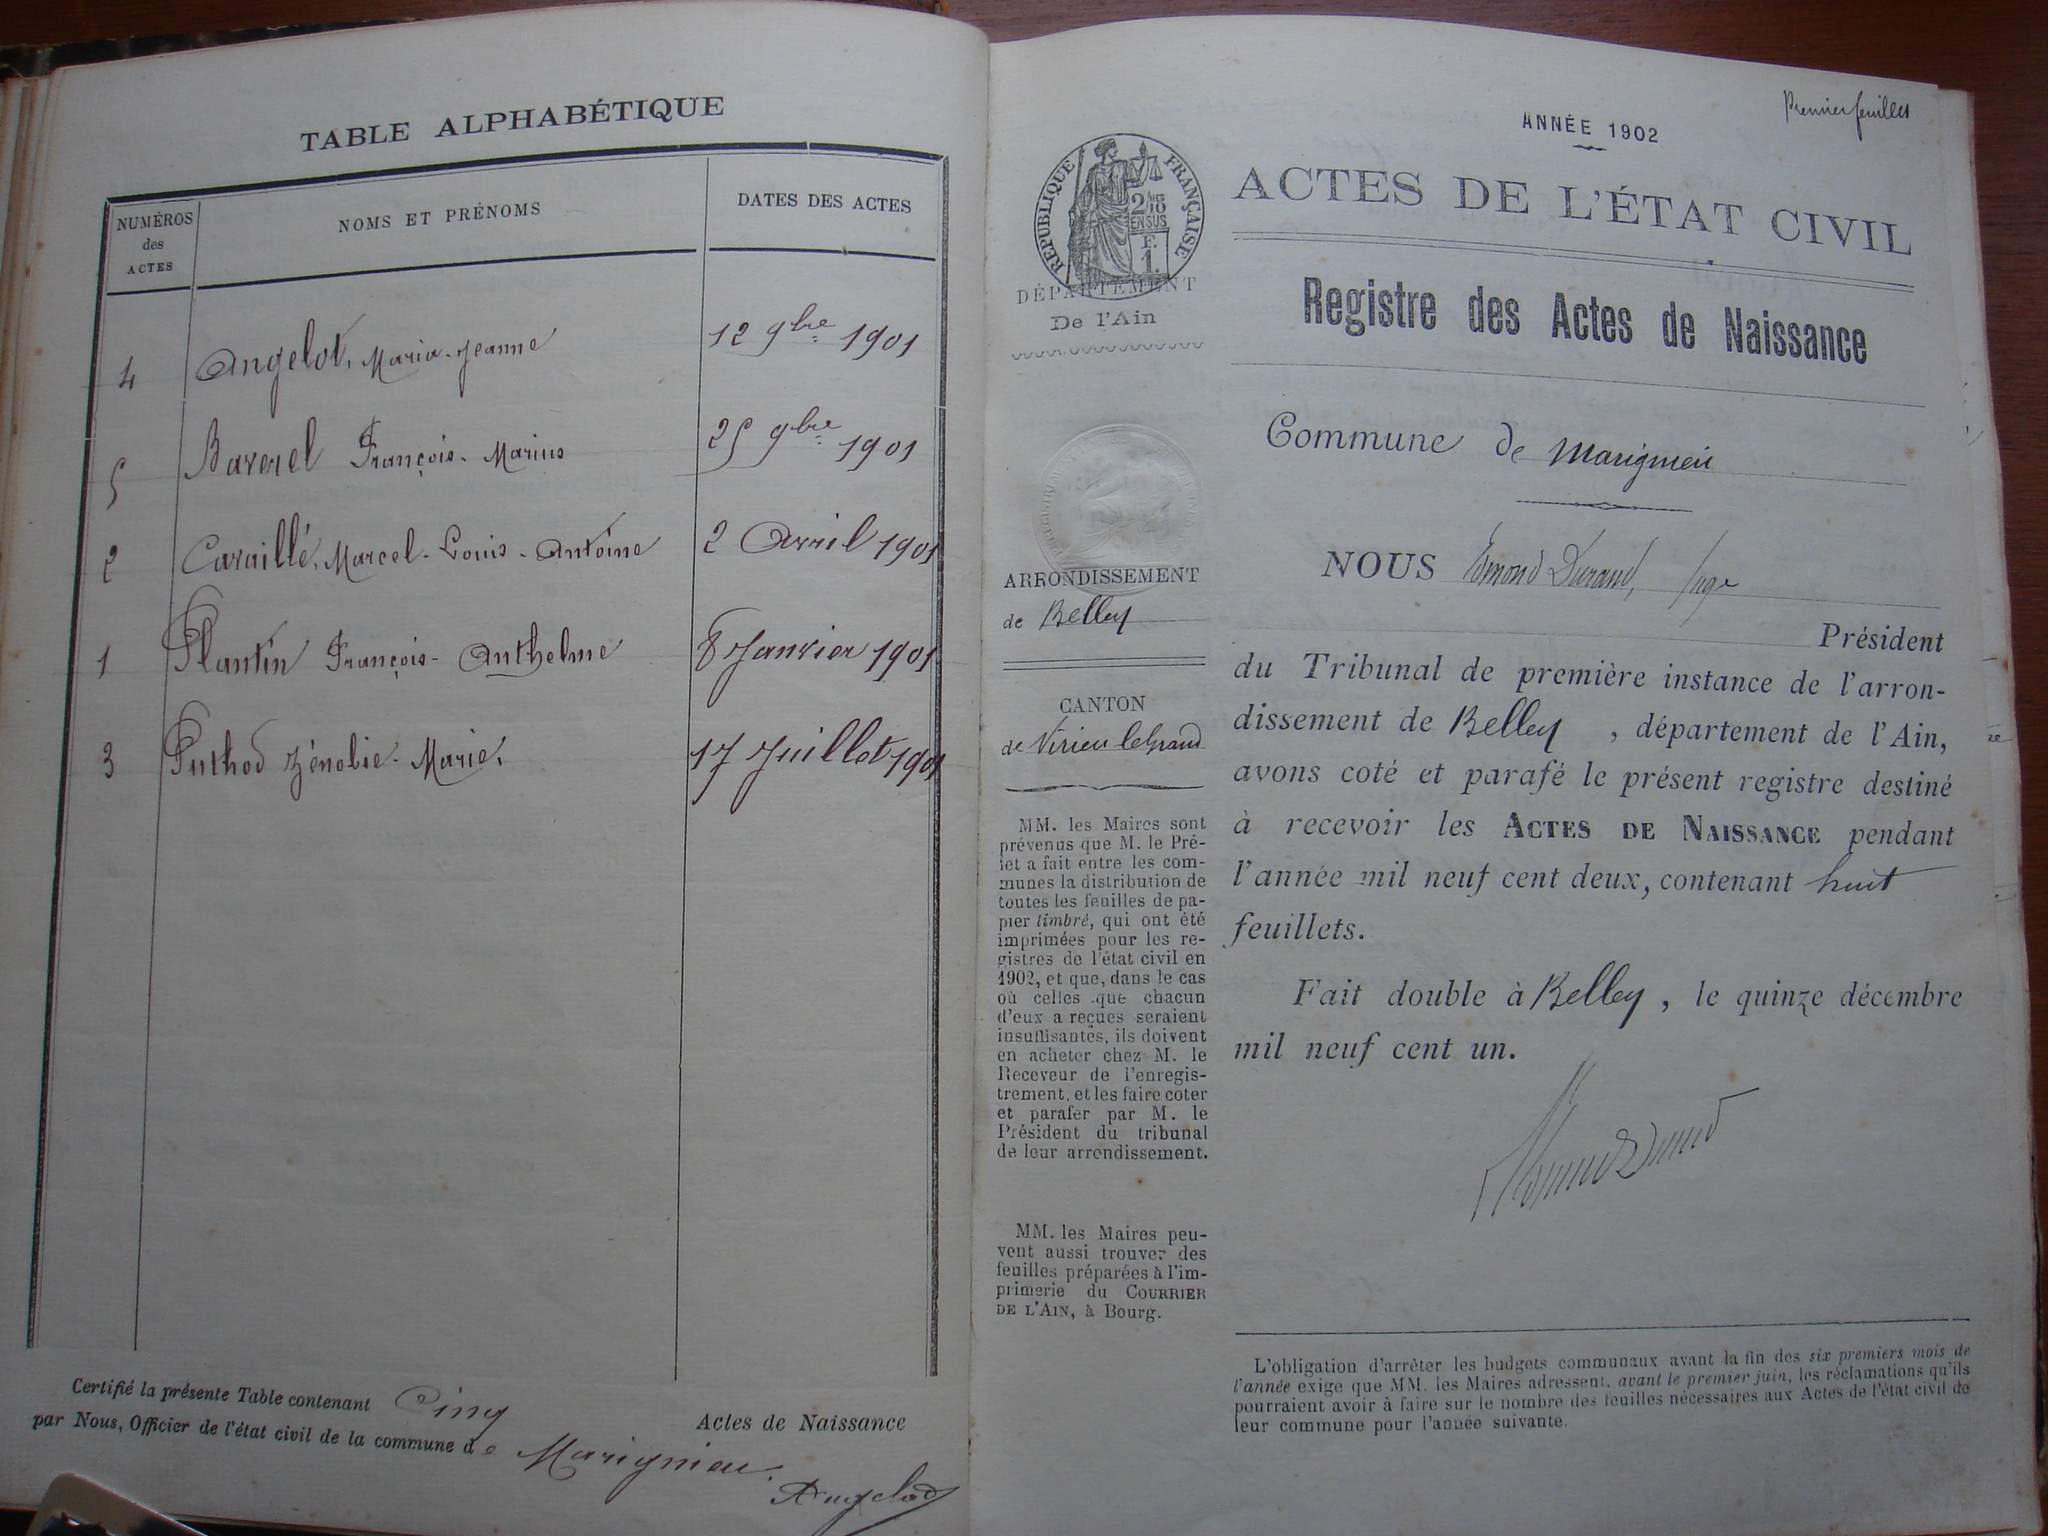 TABLE ALPHABÉTIQUE
NUMÉROS
des
ACTES
NOMS ET PRÉNOMS
DATES DES ACTES
4 Angelot, Maria-Jeanne 12 9bre 1901
5 Baverel François-Marius 25 9bre 1901
2 Caraillé, Marcel-Louis-Antoine 2 Avril 1901
1 Plantin François-Anthelme 8 Janvier 1901
3 Puthod Zénobie-Marie. 17 Juillet 1901
Certifié la présente Table contenant Cinq Actes de Naissance
par Nous, Officier de l'état civil de la commune de Marignieu.
Angelot
Premier feuillet
ANNÉE 1902
RÉPUBLIQUE FRANÇAISE
2/10
EN SUS
F.
1.
DÉPARTEMENT
De l'Ain
ARRONDISSEMENT
de Belley
CANTON
de Virieu leGrand
MM. les Maires sont
prévenus que M. le Pré-
fet a fait entre les com-
munes la distribution de
toutes les feuilles de pa-
pier timbré, qui ont été
imprimées pour les re-
gistres de l'état civil en
1902, et que, dans le cas
où celles que chacun
d'eux a reçues seraient
insuffisantes, ils doivent
en acheter chez M. le
Receveur de l'enregis-
trement, et les faire coter
et parafer par M. le
Président du tribunal
de leur arrondissement.
MM. les Maires peu-
vent aussi trouver des
feuilles préparées à l'im-
primerie du COURRIER
DE L'AIN, à Bourg.
ACTES DE L'ÉTAT CIVIL
Registre des Actes de Naissance
Commune de Marignieu
NOUS Edmond Durand, Juge
Président
du Tribunal de première instance de l'arron-
dissement de Belley, département de l'Ain,
avons coté et parafé le présent registre destiné
à recevoir les ACTES DE NAISSANCE pendant
l'année mil neuf cent deux, contenant huit
feuillets.
Fait double à Belley, le quinze décembre
mil neuf cent un.
Edmond Durand
L'obligation d'arrêter les budgets communaux avant la fin des six premiers mois de
l'année exige que MM. les Maires adressent, avant le premier juin, les réclamations qu'ils
pourraient avoir à faire sur le nombre des feuilles nécessaires aux Actes de l'état civil de
leur commune pour l'année suivante.